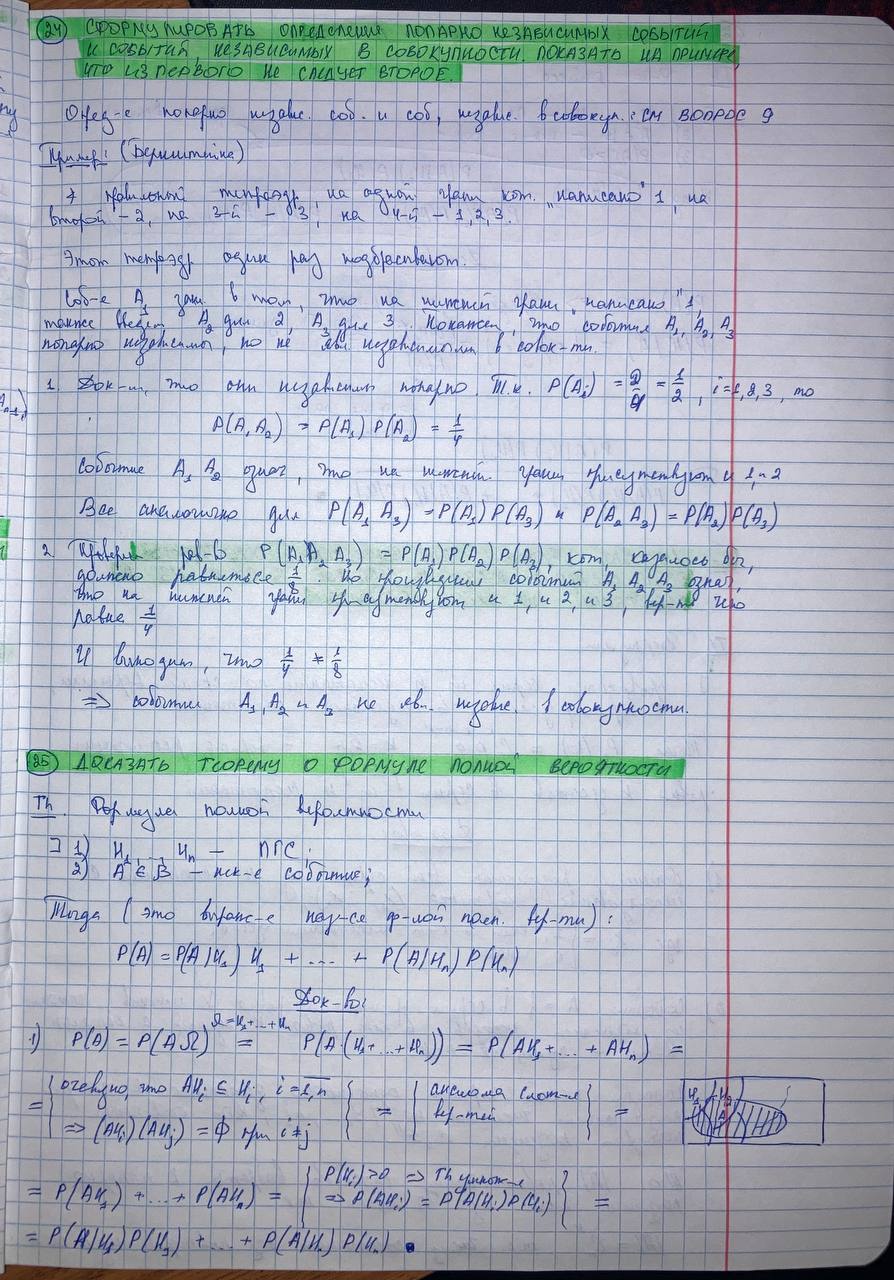 24 СФОРМУЛИРОВАТЬ ОПРЕДЕЛЕНИЕ ПОПАРНО НЕЗАВИСИМЫХ СОБЫТИЙ
И СОБЫТИЙ, НЕЗАВИСИМЫХ В СОВОКУПНОСТИ. ПОКАЗАТЬ НА ПРИМЕРЕ,
ЧТО ИЗ ПЕРВОГО НЕ СЛЕДУЕТ ВТОРОЕ.
Опред-е попарно независ. соб. и соб, независ. в совокуп.: СМ ВОПРОС 9
Пример: (Бернштейна)
правильный тетраэдр, на одной грани кот. "написано" 1, на
второй – 2, на 3-й – 3, на 4-й – 1, 2, 3.
Этот тетраэдр один раз подбрасывают.
Соб-е A₁ закл. в том, что на нижней грани "написано" 1,
также введём A₂ для 2, A₃ для 3. Покажем, что события A₁, A₂, A₃
попарно независимы, но не явл. независимыми в совок-ти.
1. Док-м, что они независимы попарно. Т.к. P(Aᵢ) = 2/4 = 1/2, i=1,2,3, то
P(A₁A₂) = P(A₁) P(A₂) = 1/4
Событие A₁ A₂ означ, что на нижней грани присутствуют и 1, и 2
Все аналогично для P(A₁ A₃) = P(A₁) P(A₃) и P(A₂ A₃) = P(A₂) P(A₃)
2. Проверим рав-во P(A₁A₂ A₃) = P(A₁) P(A₂) P(A₃), кот, казалось бы,
должно равняться 1/8. Но произведение событий A₁ A₂ A₃ означ,
что на нижней грани присутствуют и 1, и 2, и 3, вер-ть чего
равна 1/4
И выходит, что 1/4 ≠ 1/8
=> события A₁, A₂ и A₃ не явл. независ. в совокупности.
25 ДОКАЗАТЬ ТЕОРЕМУ О ФОРМУЛЕ ПОЛНОЙ ВЕРОЯТНОСТИ
Th. Формула полной вероятности
∃ 1) H₁, ..., Hₙ – ПГС;
2) A ∈ B – нек-е событие;
Тогда (это выраж-е наз-ся ф-лой полн. вер-ти):
P(A) = P(A|H₁) H₁ + ... + P(A|Hₙ) P(Hₙ)
Док-во:
1) P(A) = P(AΩ) = P(A·(H₁+...+Hₙ)) = P(AH₁+...+AHₙ) =
Ω=H₁+...+Hₙ
= { очевидно, что AHᵢ ⊆ Hᵢ, i = 1,n } = { аксиома слож-я } =
=> (AHᵢ)(AHⱼ) = Ф при i≠j вер-тей
H₁ H₂
A
= P(AH₁) + ... + P(AHₙ) = { P(Hᵢ)>0 => Th умнож-я
=> P(AHᵢ) = P(A|Hᵢ)P(Hᵢ) } =
= P(A|H₁)P(H₁) + ... + P(A|Hₙ) P(Hₙ).